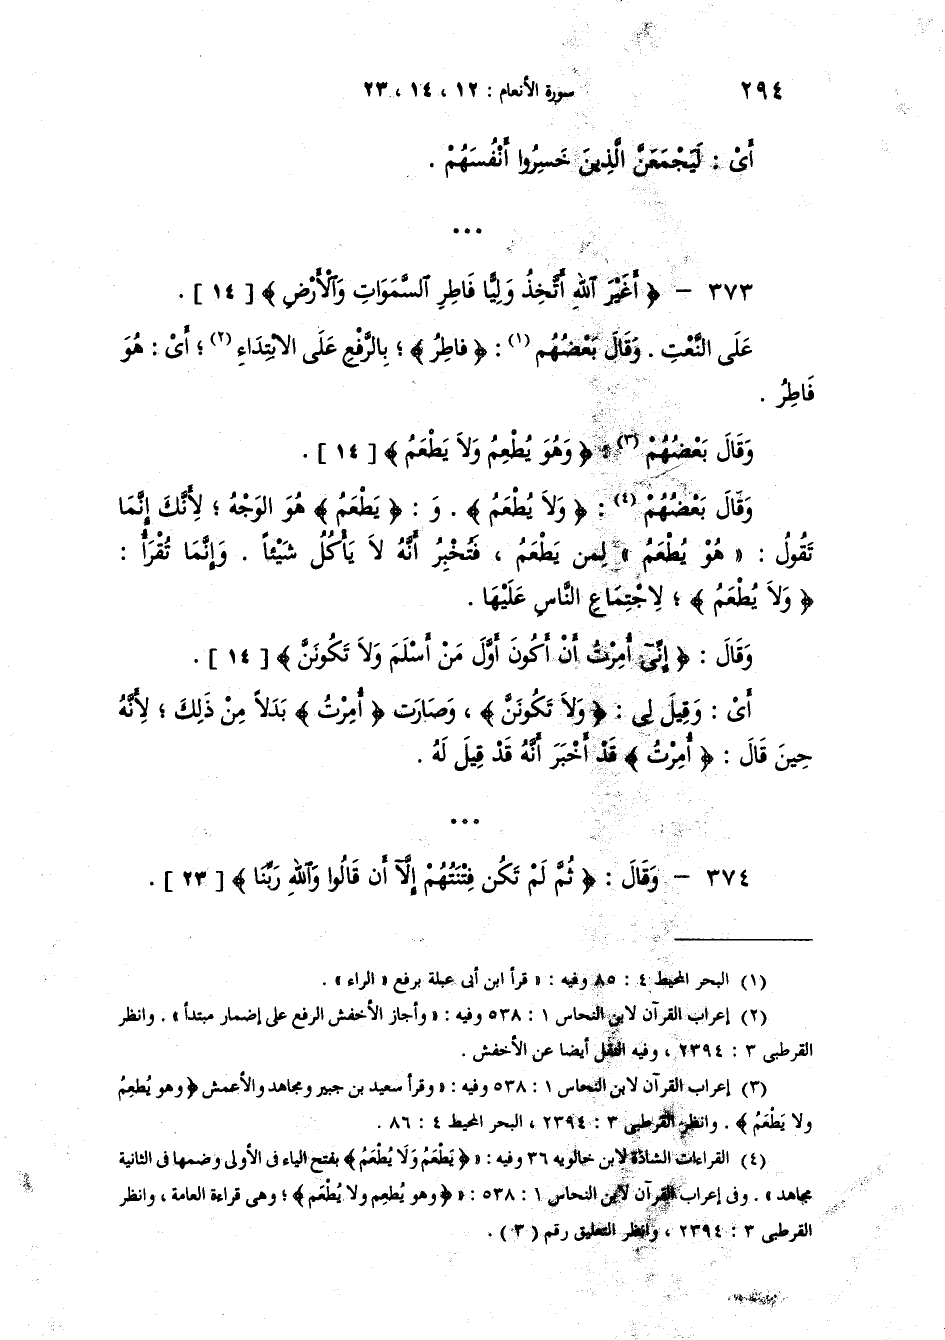 ٢٩٤ سورة الأنعام : ١٢ ، ١٤ ، ٢٣
أَىْ : لَيَجْمَعَنَّ الَّذِينَ خَسِرُوا أَنْفُسَهُمْ .
• • •
٣٧٣ – ﴿ أَغَيْرَ ٱللهِ أَتَّخِذُ وَلِيًّا فَاطِرِ ٱلسَّمَوَاتِ وَٱلْأَرْضِ ﴾ [ ١٤ ] .
عَلَى النَّعْتِ . وَقَالَ بَعْضُهُم (١) : ﴿ فاطِرُ ﴾ ؛ بِالرَّفْعِ عَلَى الابْتِدَاءِ (٢) ؛ أَىْ : هُوَ
فَاطِرُ .
وَقَالَ بَعْضُهُمْ (٣) : ﴿ وَهُوَ يُطْعِمُ وَلاَ يَطْعَمُ ﴾ [ ١٤ ] .
وَقَالَ بَعْضُهُمْ (٤) : ﴿ وَلاَ يُطْعَمُ ﴾ . وَ : ﴿ يَطْعَمُ ﴾ هُوَ الوَجْهُ ؛ لِأَنَّكَ إِنَّمَا
تَقُولُ : « هُوَ يُطْعَمُ » لِمن يَطْعَمُ ، فَتُخْبِرُ أَنَّهُ لاَ يَأْكُلُ شَيْئاً . وَإِنَّمَا تُقْرَأُ :
﴿ وَلاَ يُطْعَمُ ﴾ ؛ لِاجْتِمَاعِ النَّاسِ عَلَيْهَا .
وَقَالَ : ﴿ إِنِّىٓ أُمِرْتُ أَنْ أَكُونَ أَوَّلَ مَنْ أَسْلَمَ وَلاَ تَكُونَنَّ ﴾ [ ١٤ ] .
أَىْ : وَقِيلَ لِى : ﴿ وَلاَ تَكُونَنَّ ﴾ ، وَصَارَت ﴿ أُمِرْتُ ﴾ بَدَلاً مِنْ ذَلِكَ ؛ لِأَنَّهُ
حِينَ قَالَ : ﴿ أُمِرْتُ ﴾ قَدْ أَخْبَرَ أَنَّهُ قَدْ قِيلَ لَهُ .
• • •
٣٧٤ – وَقَالَ : ﴿ ثُمَّ لَمْ تَكُن فِتْنَتُهُمْ إِلَّآ أَن قَالُوا وَٱللهِ رَبِّنَا ﴾ [ ٢٣ ] .
(١) البحر المحيط ٤ : ٨٥ وفيه : « قرأ ابن أبى عبلة برفع « الراء » .
(٢) إعراب القرآن لابن النحاس ١ : ٥٣٨ وفيه : « وأجاز الأخفش الرفع على إضمار مبتدأ » . وانظر
القرطبى ٣ : ٢٣٩٤ ، وفيه النقل أيضا عن الأخفش .
(٣) إعراب القرآن لابن النحاس ١ : ٥٣٨ وفيه : « وقرأ سعيد بن جبير ومجاهد والأعمش ﴿ وهو يُطعِمُ
ولا يَطْعَمُ ﴾ . وانظر القرطبى ٣ : ٢٣٩٤ ، البحر المحيط ٤ : ٨٦ .
(٤) القراءات الشاذة لابن خالويه ٣٦ وفيه : « ﴿ يَطْعَمُ وَلَا يُطْعَمُ ﴾ بفتح الياء فى الأولى وضمها فى الثانية
مجاهد » . وفى إعراب القرآن لابن النحاس ١ : ٥٣٨ : « ﴿ وهو يُطعِم ولا يُطْعَم ﴾ ؛ وهى قراءة العامة ، وانظر
القرطبى ٣ : ٢٣٩٤ ، وانظر التعليق رقم ( ٣ ) .